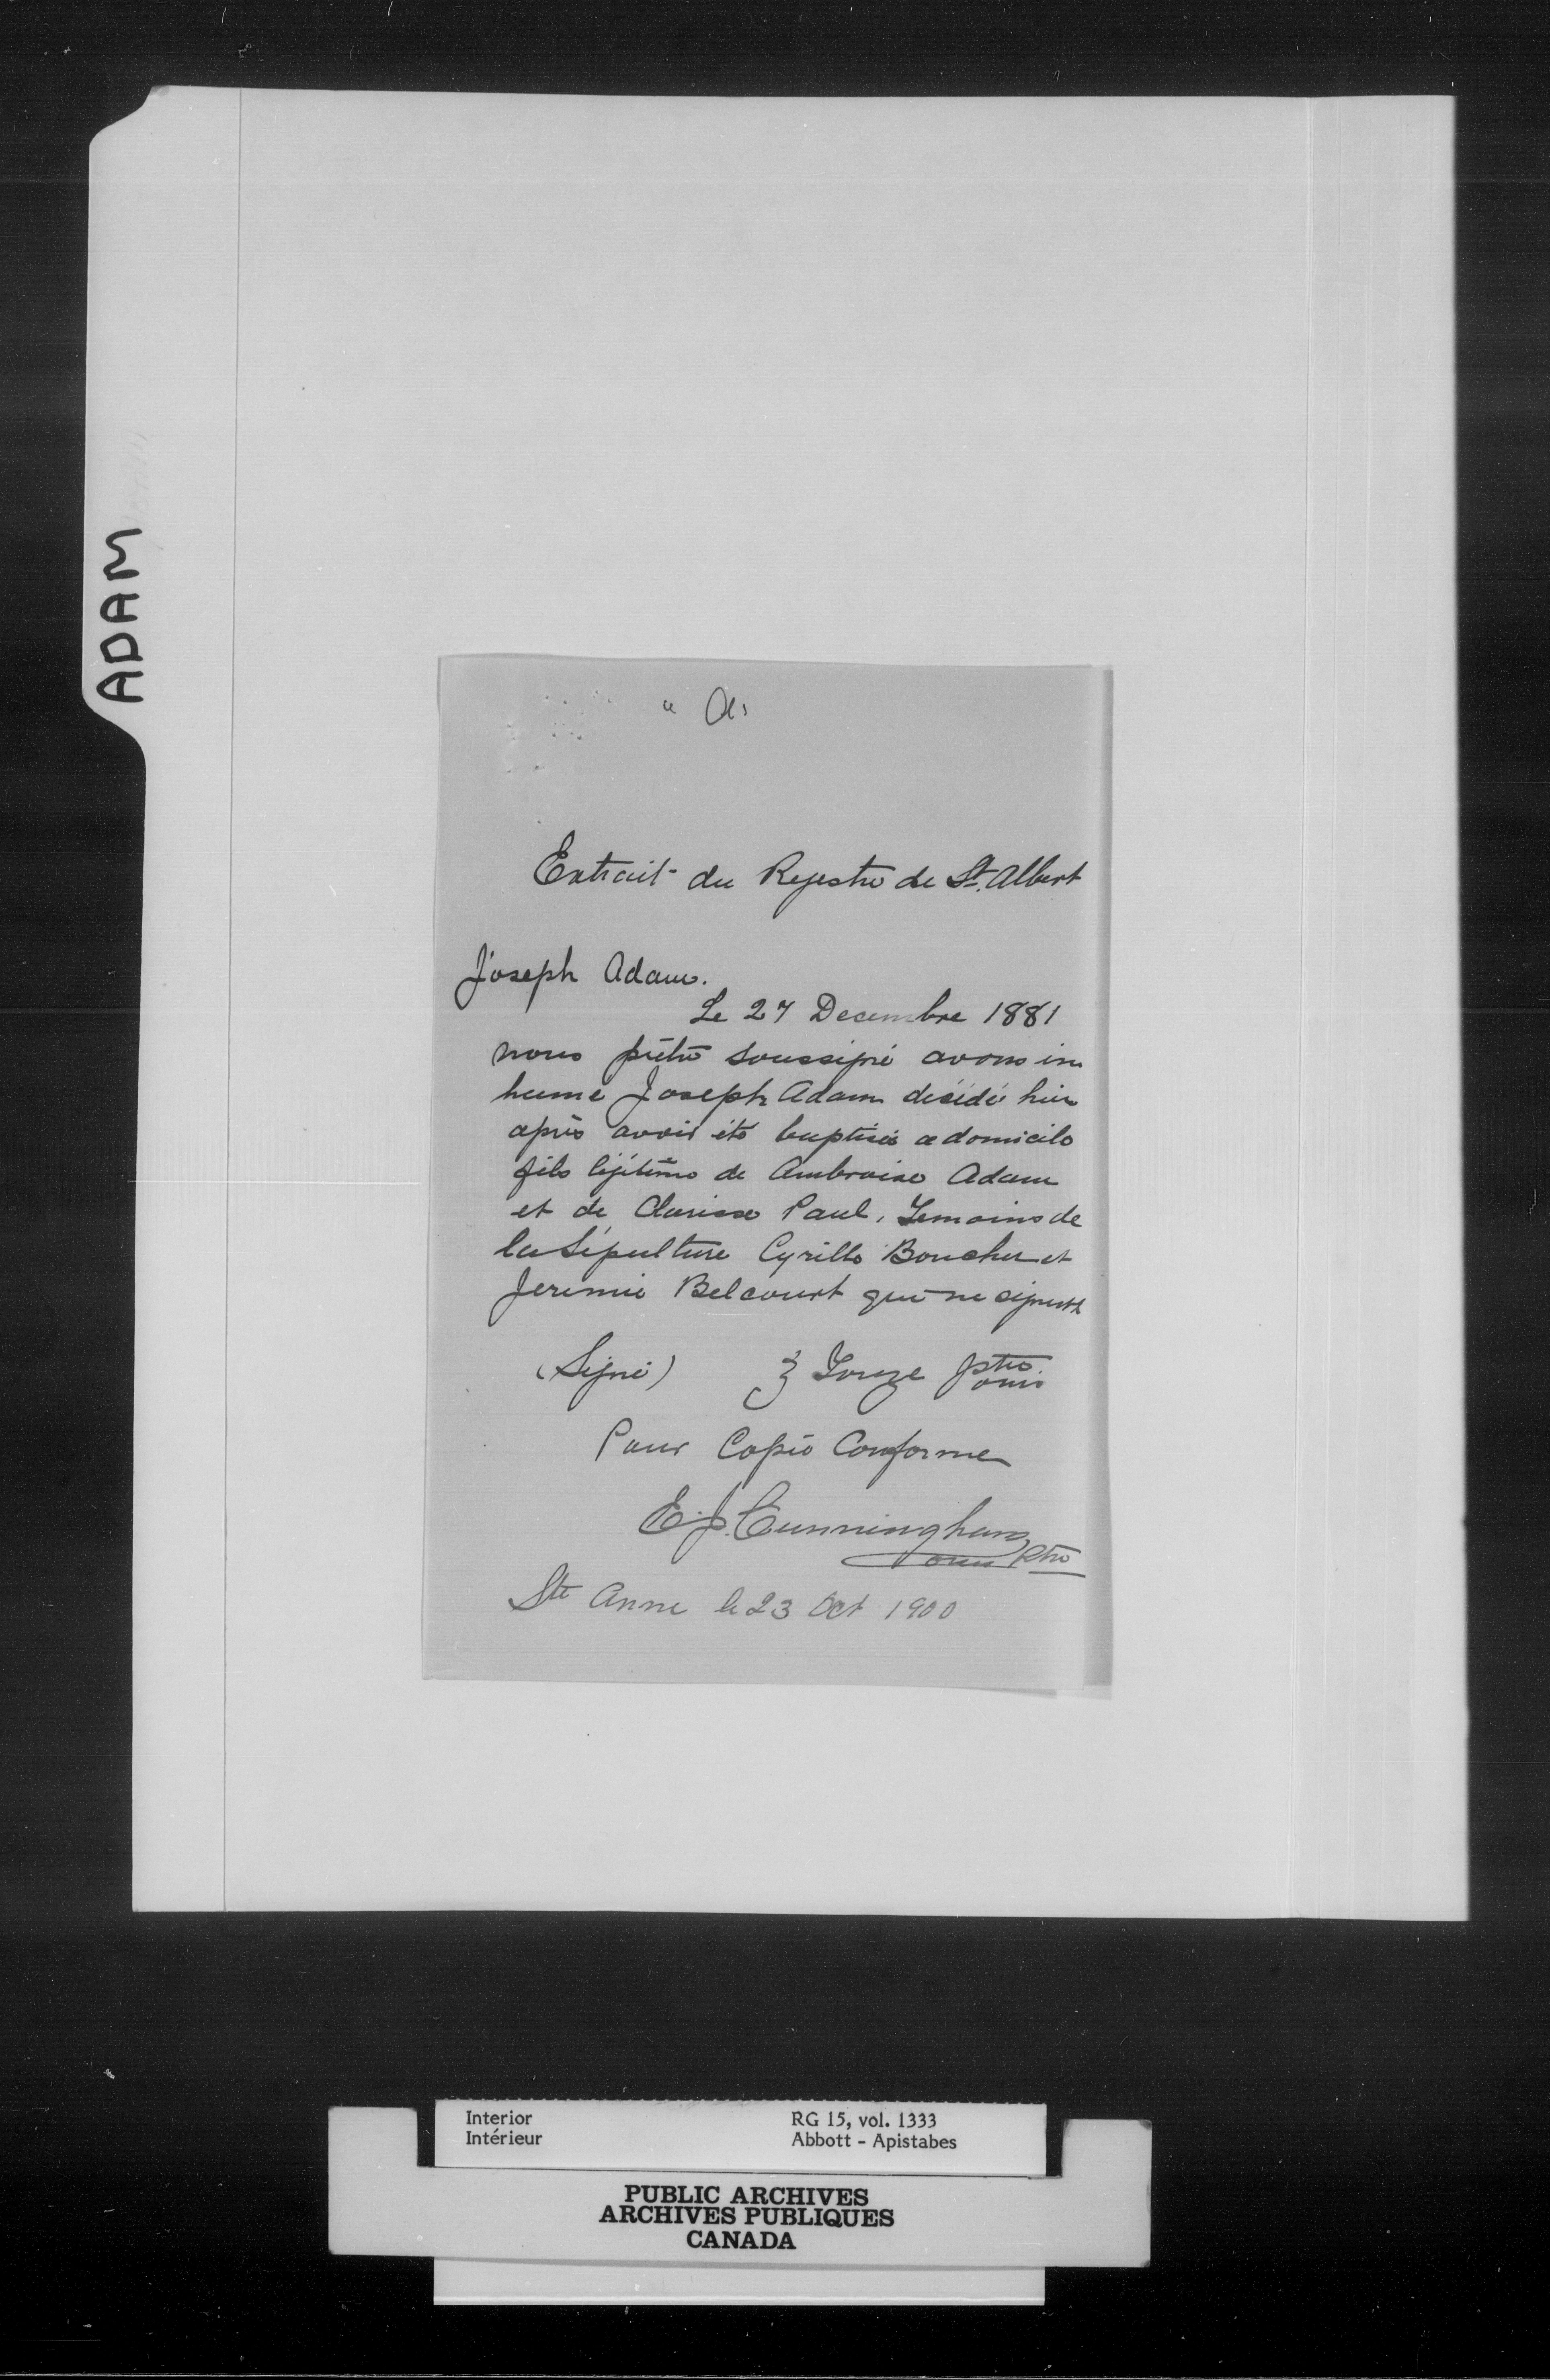 ADAM
" A "
Extrait du Rejestre de St. Albert
Joseph Adam.
Le 27 Decembre 1881
nous prêtre soussigné avons in
humé Joseph Adam décédé hier
après avoir été baptisé a domicile
fils légitime de Ambroise Adam
et de Clarisse Paul. Temoins de
la Sépulture Cyrille Boucher et
Jeremie Belcourt qui ne signent
(Signé) Z Touze ptre omi
Pour Copie Conforme
E. J. Cunningham
omi Ptre
Ste Anne le 23 Oct 1900
Interior RG 15, vol. 1333
Intérieur Abbott - Apistabes
PUBLIC ARCHIVES
ARCHIVES PUBLIQUES
CANADA